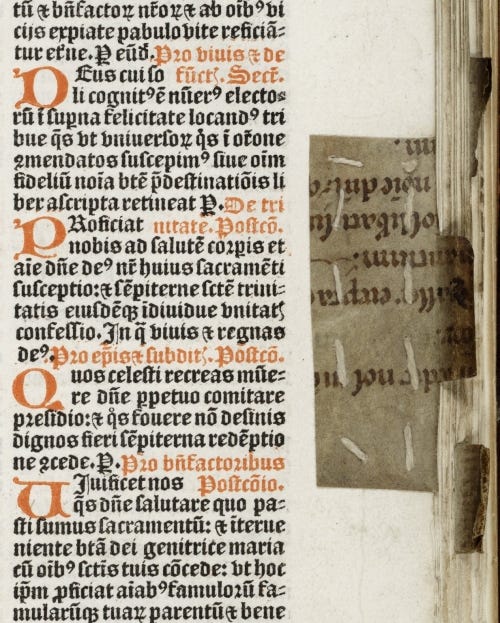 tū ⁊ bn̄factoꝝ nr̄oꝝ ⁊ ab oīb⁹ vi
cijs expiate pabulo vite reficiā-
tur et̄ne. P eūd̄. Pro viuis ⁊ de
DEus cui so fūct. Secr̄.
li cognit⁹ ē nūer⁹ electo-
rū ī sup̄na felicitate locand⁹ tri
bue q̄s vt vniuersoꝝ q̄s ī or̄one
ꝯmendatos suscepim⁹ siue oīm
fideliū noīa btē p̄destinatiōis li
ber ascripta retineat P. De tri
PRoficiat nitate. Postcō.
nobis ad salutē corpis et
aīe dn̄e de⁹ nr̄ huius sacramēti
susceptio: ⁊ sēpiterne sctē trini-
tatis eiusdēq̄ īdiuidue vnitat
confessio. Jn q̄ viuis ⁊ regnas
de⁹. Pro ep̄is ⁊ subdit. Postcō.
Quos celesti recreas mūe-
re dn̄e ꝑpetuo comitare
presidio: ⁊ q̊s fouere nō desinis
dignos fieri sēpiterna redēptio
ne ꝯcede. P. Pro bn̄factoribus
UJuificet nos Postcōio.
q̄s dn̄e salutare quo pa-
sti sumus sacramentū: ⁊ īterue
niente btā dei genitrice maria
cū oīb⁹ sctīs tuis cōcede: vt hoc
ip̄m ꝓficiat aīab⁹ famulorū fa-
mularūq̄ tuaꝝ parentū ⁊ bene